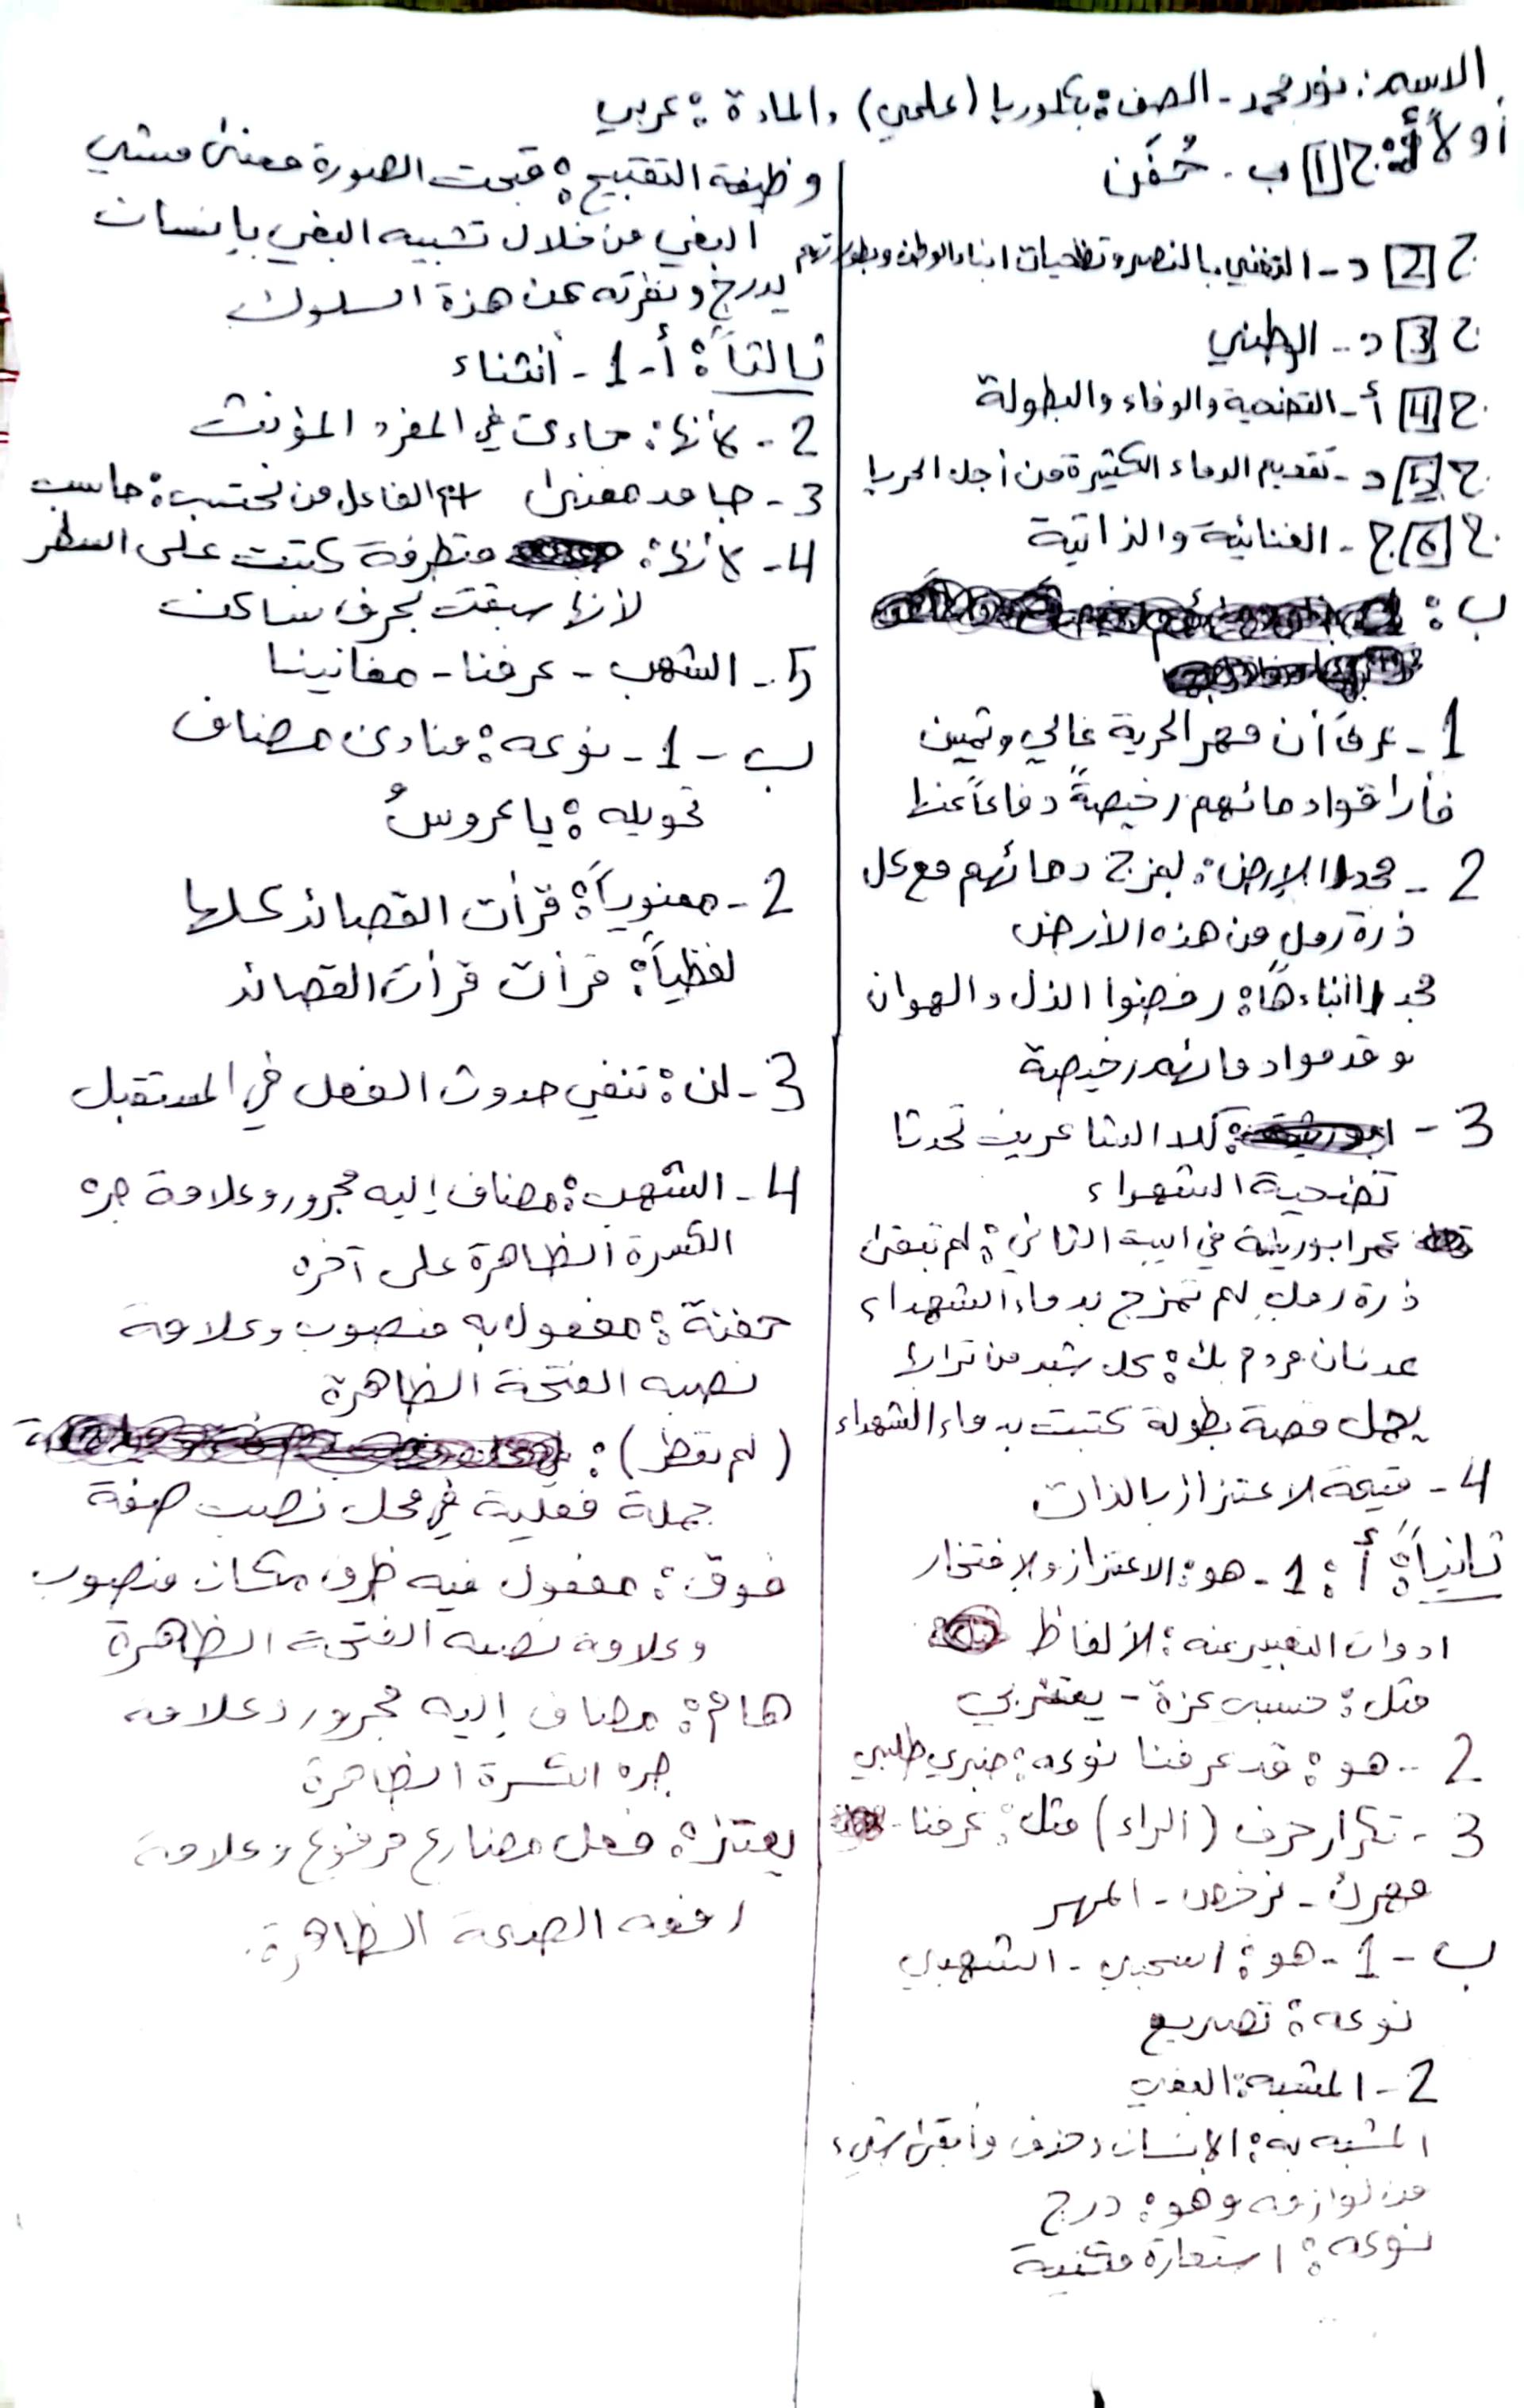 الاسم: نور محمد - الصف: بكلوريا (علمي) . المادة: عربي
أولاً: أ: ج 1 ب. حُفَن
ج 2 د - التغني بالنصر وتضحيات ابناء الوطن وبطولاتهم
ج 3 د - الوطني
ج 4 أ - التضحية والوفاء والبطولة
ج 5 د - تقديم الدماء الكثيرة من أجل الحريا
ج 6 ج - الغنائية والذاتية
ب:
1 - عرف أن مهر الحرية غالي وثمين
فأراقوا دمائهم رخيصةً دفاعاً عنها
2 - مجدا الارض: لمزج دمائهم مع كل
ذرة رمل من هذه الأرض
مجدا ابناءها: رفضوا الذل والهوان
وقدموا دمائهم رخيصة
3 - كلا الشاعرين تحدثا
تضحية الشهداء
عمر ابوريشة في البيت الثاني: لم تبقى
ذرة رملٍ لم تمزج بدماء الشهداء
عدنان مردم بك: كل شبر من ترابها
يحمل قصة بطولة كتبت بدماء الشهداء
4 - قيمة الاعتزاز بالذات
ثانياً: أ: 1 - هو: الاعتزاز والافتخار
ادوات التعبير عنه: الألفاظ
مثل: حسبي عزة - يعتز بي
2 - هو: قد عرفنا نوعه: خبري طلبي
3 - تكرار حرف (الراء) مثل: عرفنا -
مهرك - نرخص - المهر
ب - 1 - هو: اسحبي - الشهبِ
نوعه: تصريع
2 - المشبه: البغي
المشبه به: الانسان وحذف وأبقى شيء
من لوازمه وهو: درج
نوعه: استعارة مكنية
وظيفة التقبيح: قبحت الصورة معنى مشي
البغي من خلال تشبيه البغي بإنسان
يدرج ونفرته عن هذة السلوك
ثالثاً: أ - 1 - أنثناء
2 - لأنها: جاءت في المفرد المؤنث
3 - جامد معنى اسم الفاعل من نحتسب: حاسب
4 - لأنها: متطرفة كتبت على السطر
لأنها سبقت بحرف ساكن
5 - الشهب - عرفنا - مغانينا
ب - 1 - نوعه: منادى مضاف
تحويله: يا عروسُ
2 - معنوياً: قرأت القصائد كلها
لفظياً: قرأت قرأت القصائد
3 - لن: تنفي حدوث الفعل في المستقبل
4 - الشهب: مضاف إليه مجرور وعلامة جره
الكسرة الظاهرة على آخره
حفنة: مفعول به منصوب وعلامة
نصبه الفتحة الظاهرة
(لم تعطر):
جملة فعلية في محل نصب صفة
فوق: مفعول فيه ظرف مكان منصوب
وعلامة نصبه الفتحة الظاهرة
هام: مضاف إليه مجرور وعلامة
جره الكسرة الظاهرة
يعتز: فعل مضارع مرفوع وعلامة
رفعه الضمة الظاهرة.